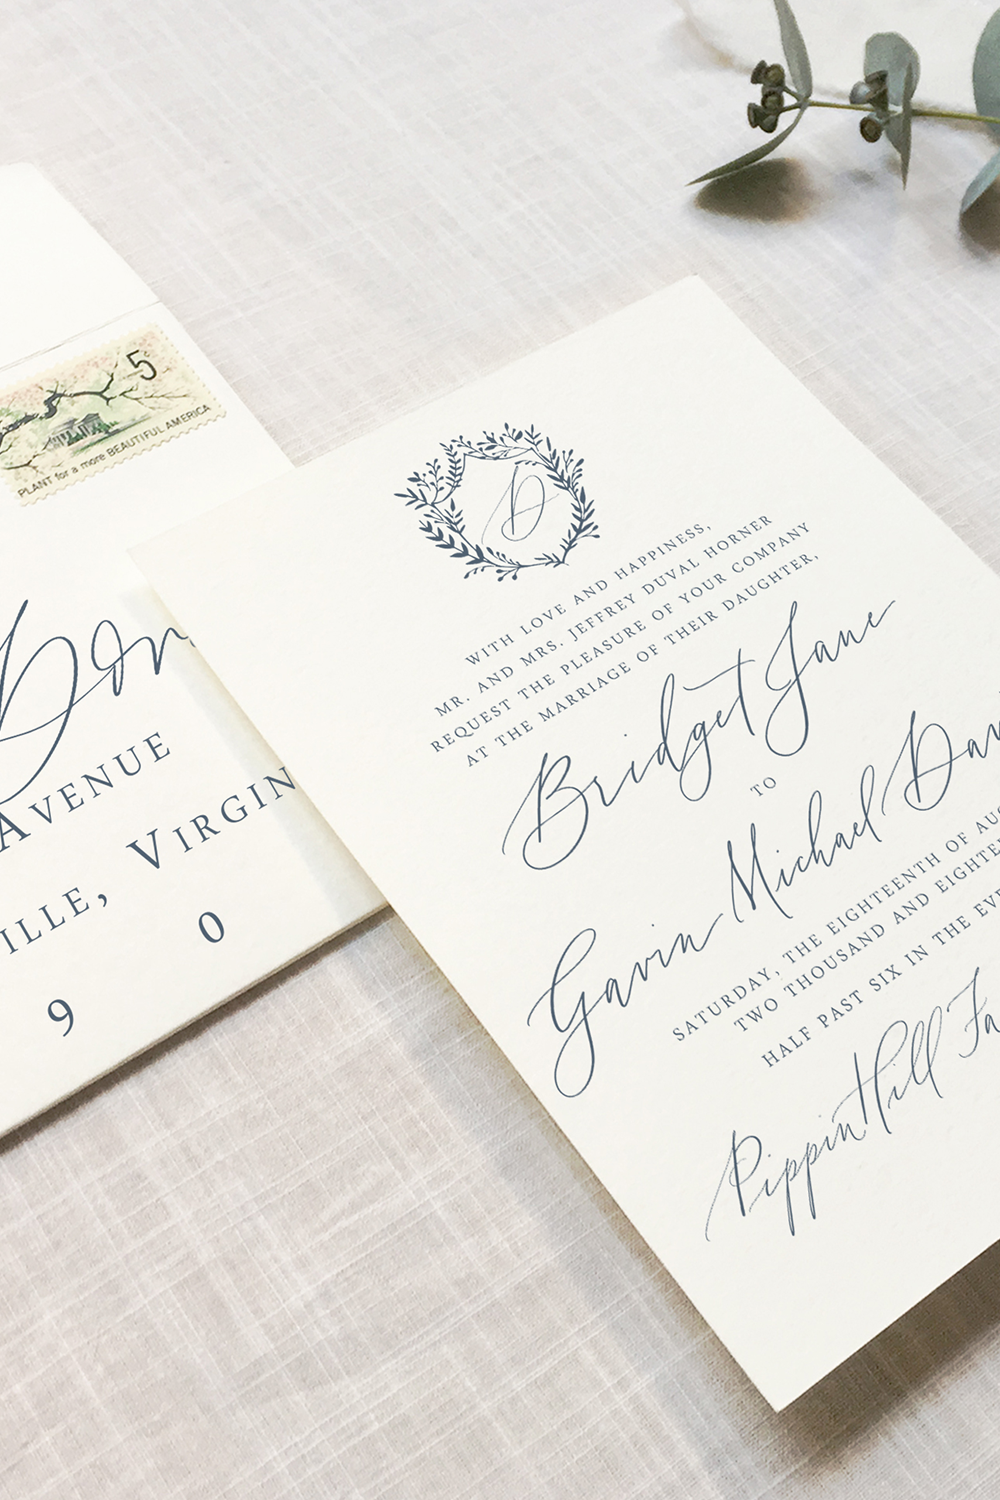 5¢
PLANT for a more BEAUTIFUL AMERICA
AVENUE
VILLE, VIRGIN
9 0
D
WITH LOVE AND HAPPINESS,
MR. AND MRS. JEFFREY DUVAL HORNER
REQUEST THE PLEASURE OF YOUR COMPANY
AT THE MARRIAGE OF THEIR DAUGHTER,
Bridget Jane
TO
Gavin Michael Dav
SATURDAY, THE EIGHTEENTH OF AUG
TWO THOUSAND AND EIGHTE
HALF PAST SIX IN THE EVE
Pippin Hill Fa